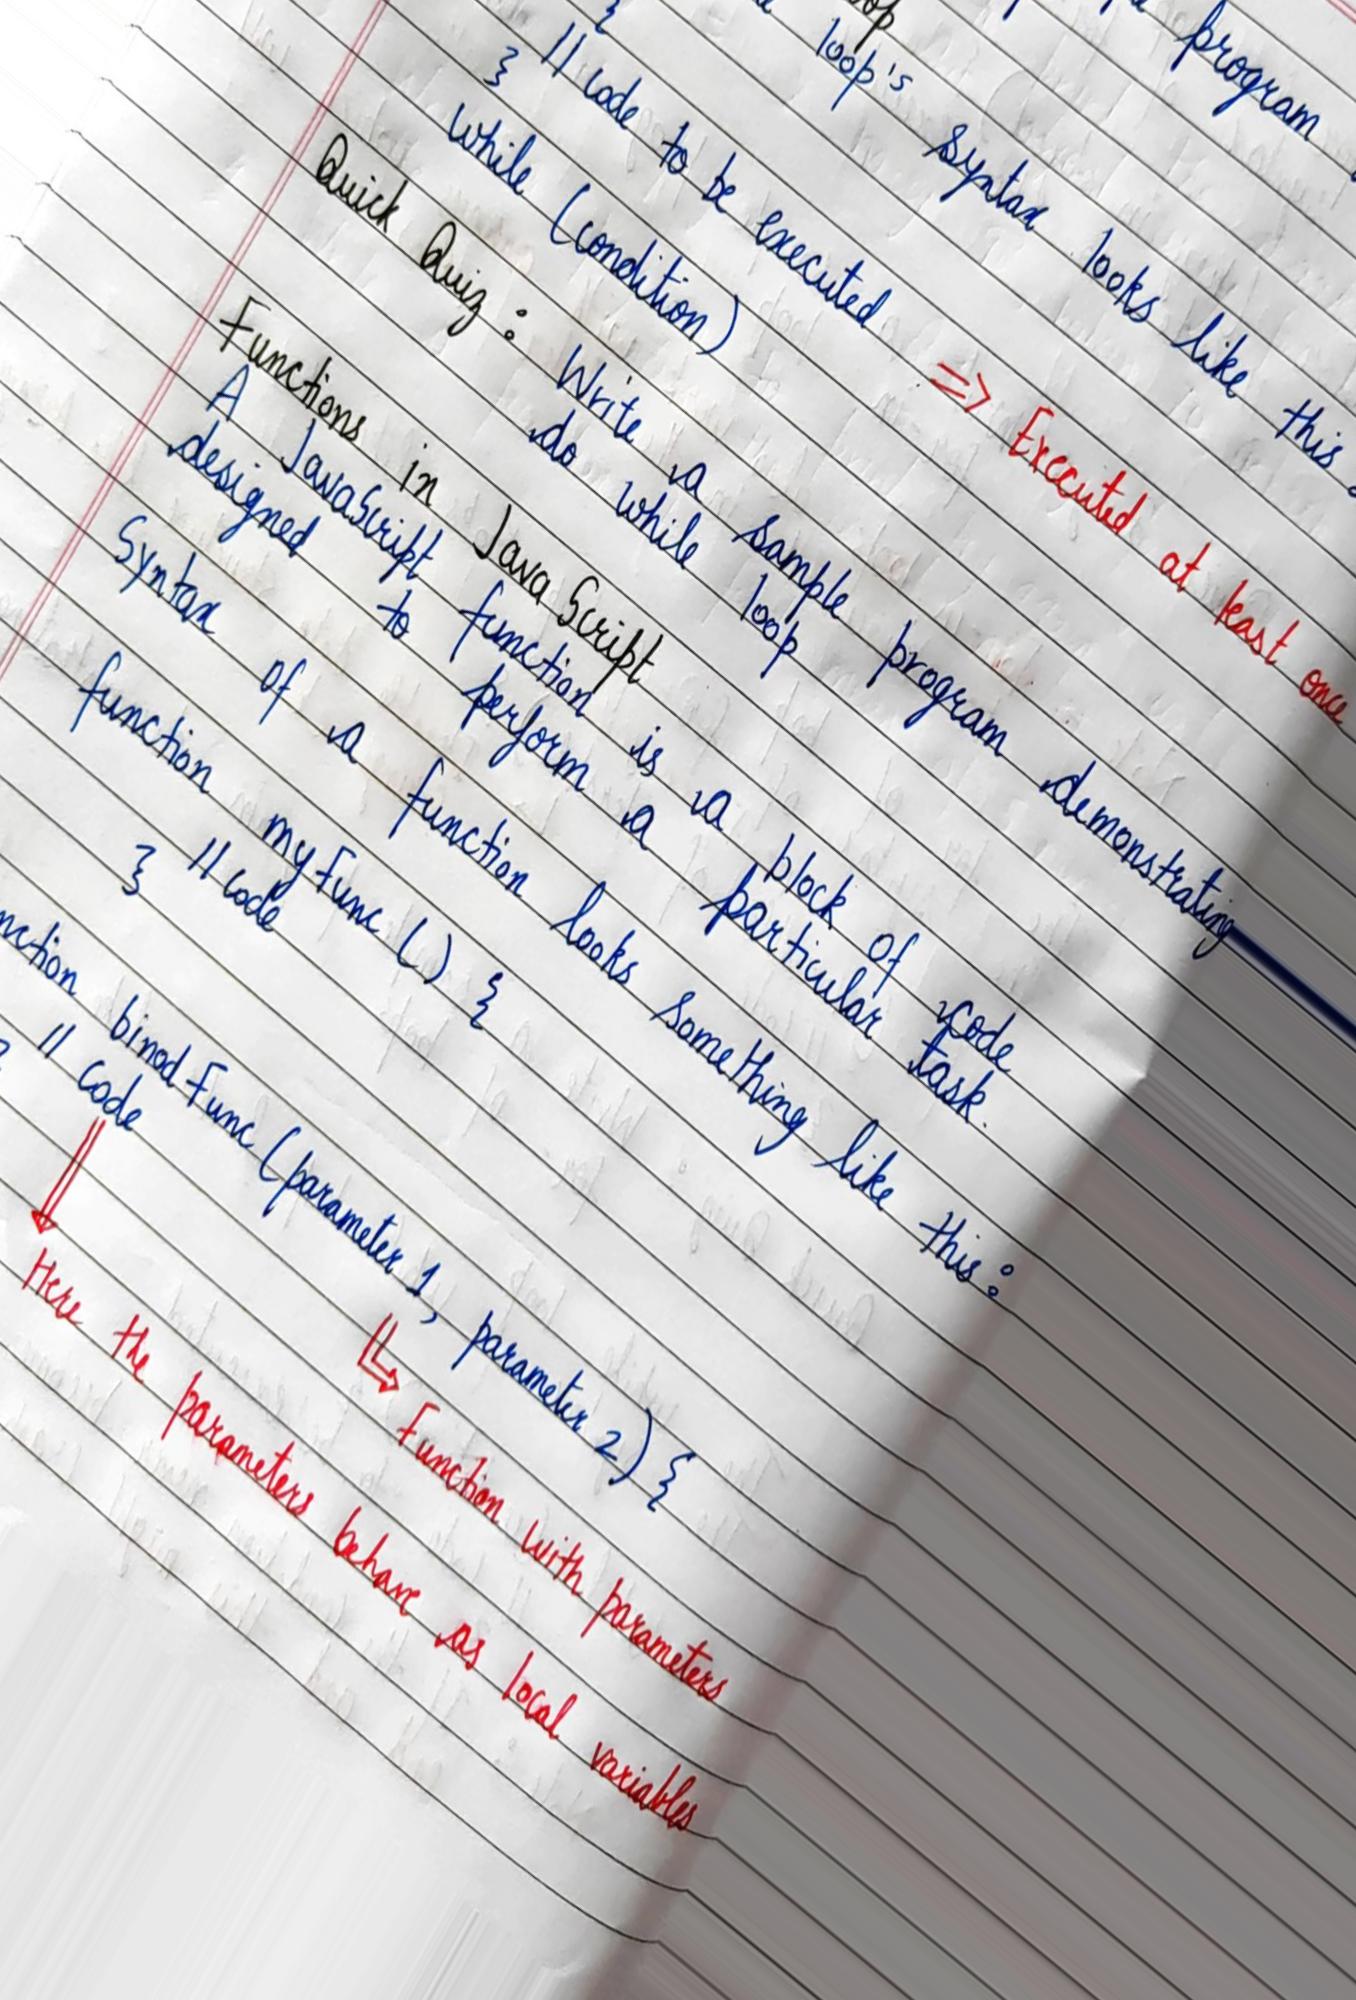 program
loop's Syntax looks like this
{
// code to be executed => Executed at least once
} while (condition)
Quick Quiz : Write a sample program demonstrating
do while loop
Functions in JavaScript
A JavaScript function is a block of code
designed to perform a particular task.
Syntax of a function looks something like this :
function myFunc () {
// code
}
binodFunc (parameter 1, parameter 2) {
// code
Function with parameters
Here the parameters behave as local variables